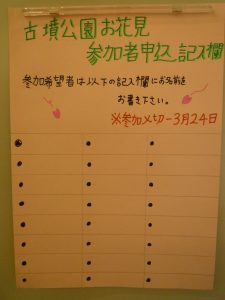 古墳公園お花見
参加者申込記入欄
参加希望者は以下の記入欄にお名前を
お書き下さい。
※参加〆切-3月24日